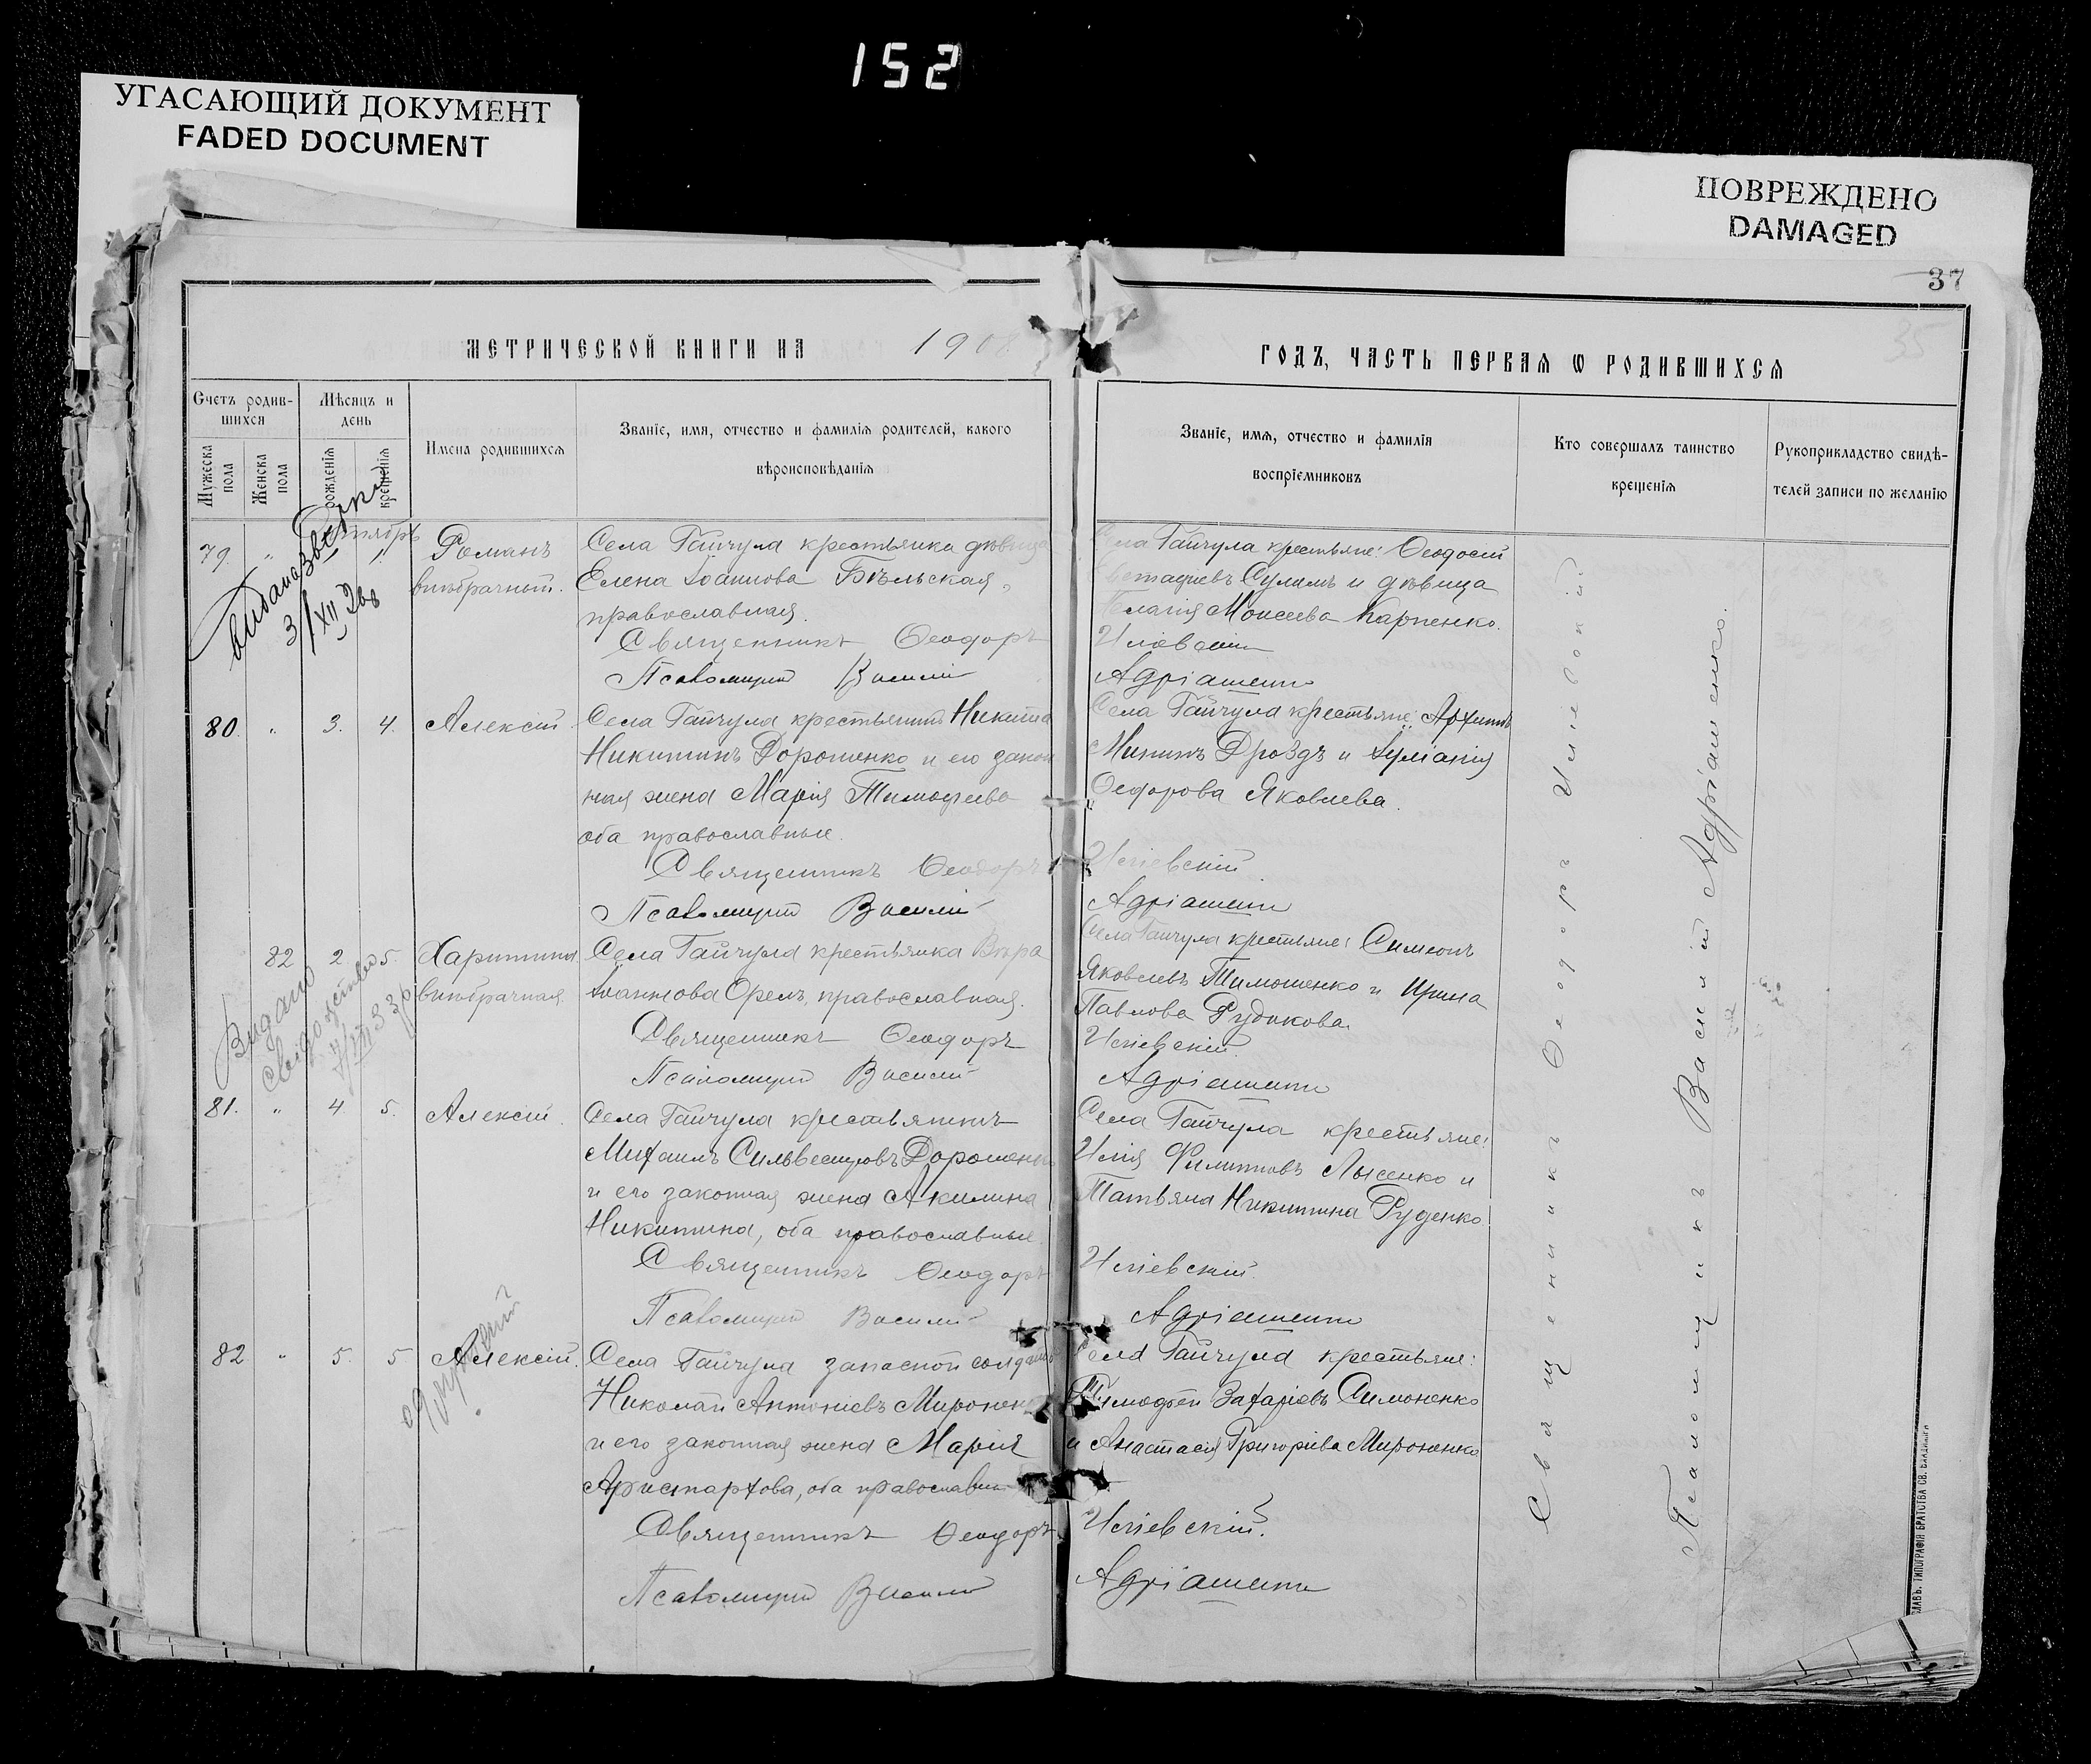 152
УГАСАЮЩИЙ ДОКУМЕНТ
FADED DOCUMENT
ПОВРЕЖДЕНО
DAMAGED
37
35
МЕТРИЧЕСКОЙ КНИГИ НА 1908
ГОДЪ, ЧАСТЬ ПЕРВАЯ Ѡ РОДИВШИХСЯ
Счетъ родив-
шихся
Мѣсяцъ и
день
Мужеска
пола
Женска
пола
рожденія
крещенія
Имена родившихся
Званіе, имя, отчество и фамилія родителей, какого
вѣроисповѣданія
Званіе, имя, отчество и фамилія
воспріемниковъ
Кто совершалъ таинство
крещенія
Рукоприкладство свидѣ-
телей записи по желанію
79. " 1. Романъ
внѣбрачный.
3/XII
Села Гайчула крестьянка дѣвица
Елена Іоаннова Бѣльская,
православная.
Священникъ Ѳеодоръ
Псаломщикъ Василій
Села Гайчула крестьяне: Ѳеодосій
Сулимъ и дѣвица
Пелагія Моисеева Карпенко.
Иліевскій
Адріашенко
80. " 3. 4. Алексій.
Села Гайчула крестьянинъ Никита
Никитинъ Дорошенко и его закон
ная жена Марія Тимофеева
оба православные.
Священникъ Ѳеодоръ
Псаломщикъ Василій
Села Гайчула крестьяне: Архипъ
Мининъ Дроздъ и Іуліанія
Ѳеодорова Яковлева.
Иліевскій
Адріашенко
82 2 5. Харитина
внѣбрачная.
Видано
свідоцтво
Села Гайчула крестьянка Вѣра
Іоаннова Орелъ, православная.
Священникъ Ѳеодоръ
Псаломщикъ Василій
Села Гайчула крестьяне: Симеонъ
Яковлевъ Тимошенко и Ирина
Павлова Рудикова.
Иліевскій.
Адріашенко
81. " 4 5. Алексій.
Села Гайчула крестьянинъ
Михаилъ Сильвестровъ Дорошенко
и его законная жена Акилина
Никитина, оба православные.
Священникъ Ѳеодоръ
Псаломщикъ Василій
Села Гайчула крестьяне:
Илія Филипповъ Лысенко и
Татьяна Никитина Руденко.
Иліевскій.
Адріашенко
82 " 5. 5 Алексій.
Села Гайчула запасной солдатъ
Николай Антоніевъ Мироненко
и его законная жена Марія
Аристархова, оба православные
Священникъ Ѳеодоръ
Псаломщикъ Василій
Села Гайчула крестьяне:
Тимофей Захаріевъ Симоненко
и Анастасія Григоріева Мироненко
Иліевскій.
Адріашенко
Священникъ Ѳеодоръ Иліевскій
Псаломщикъ Василій Адріашенко.